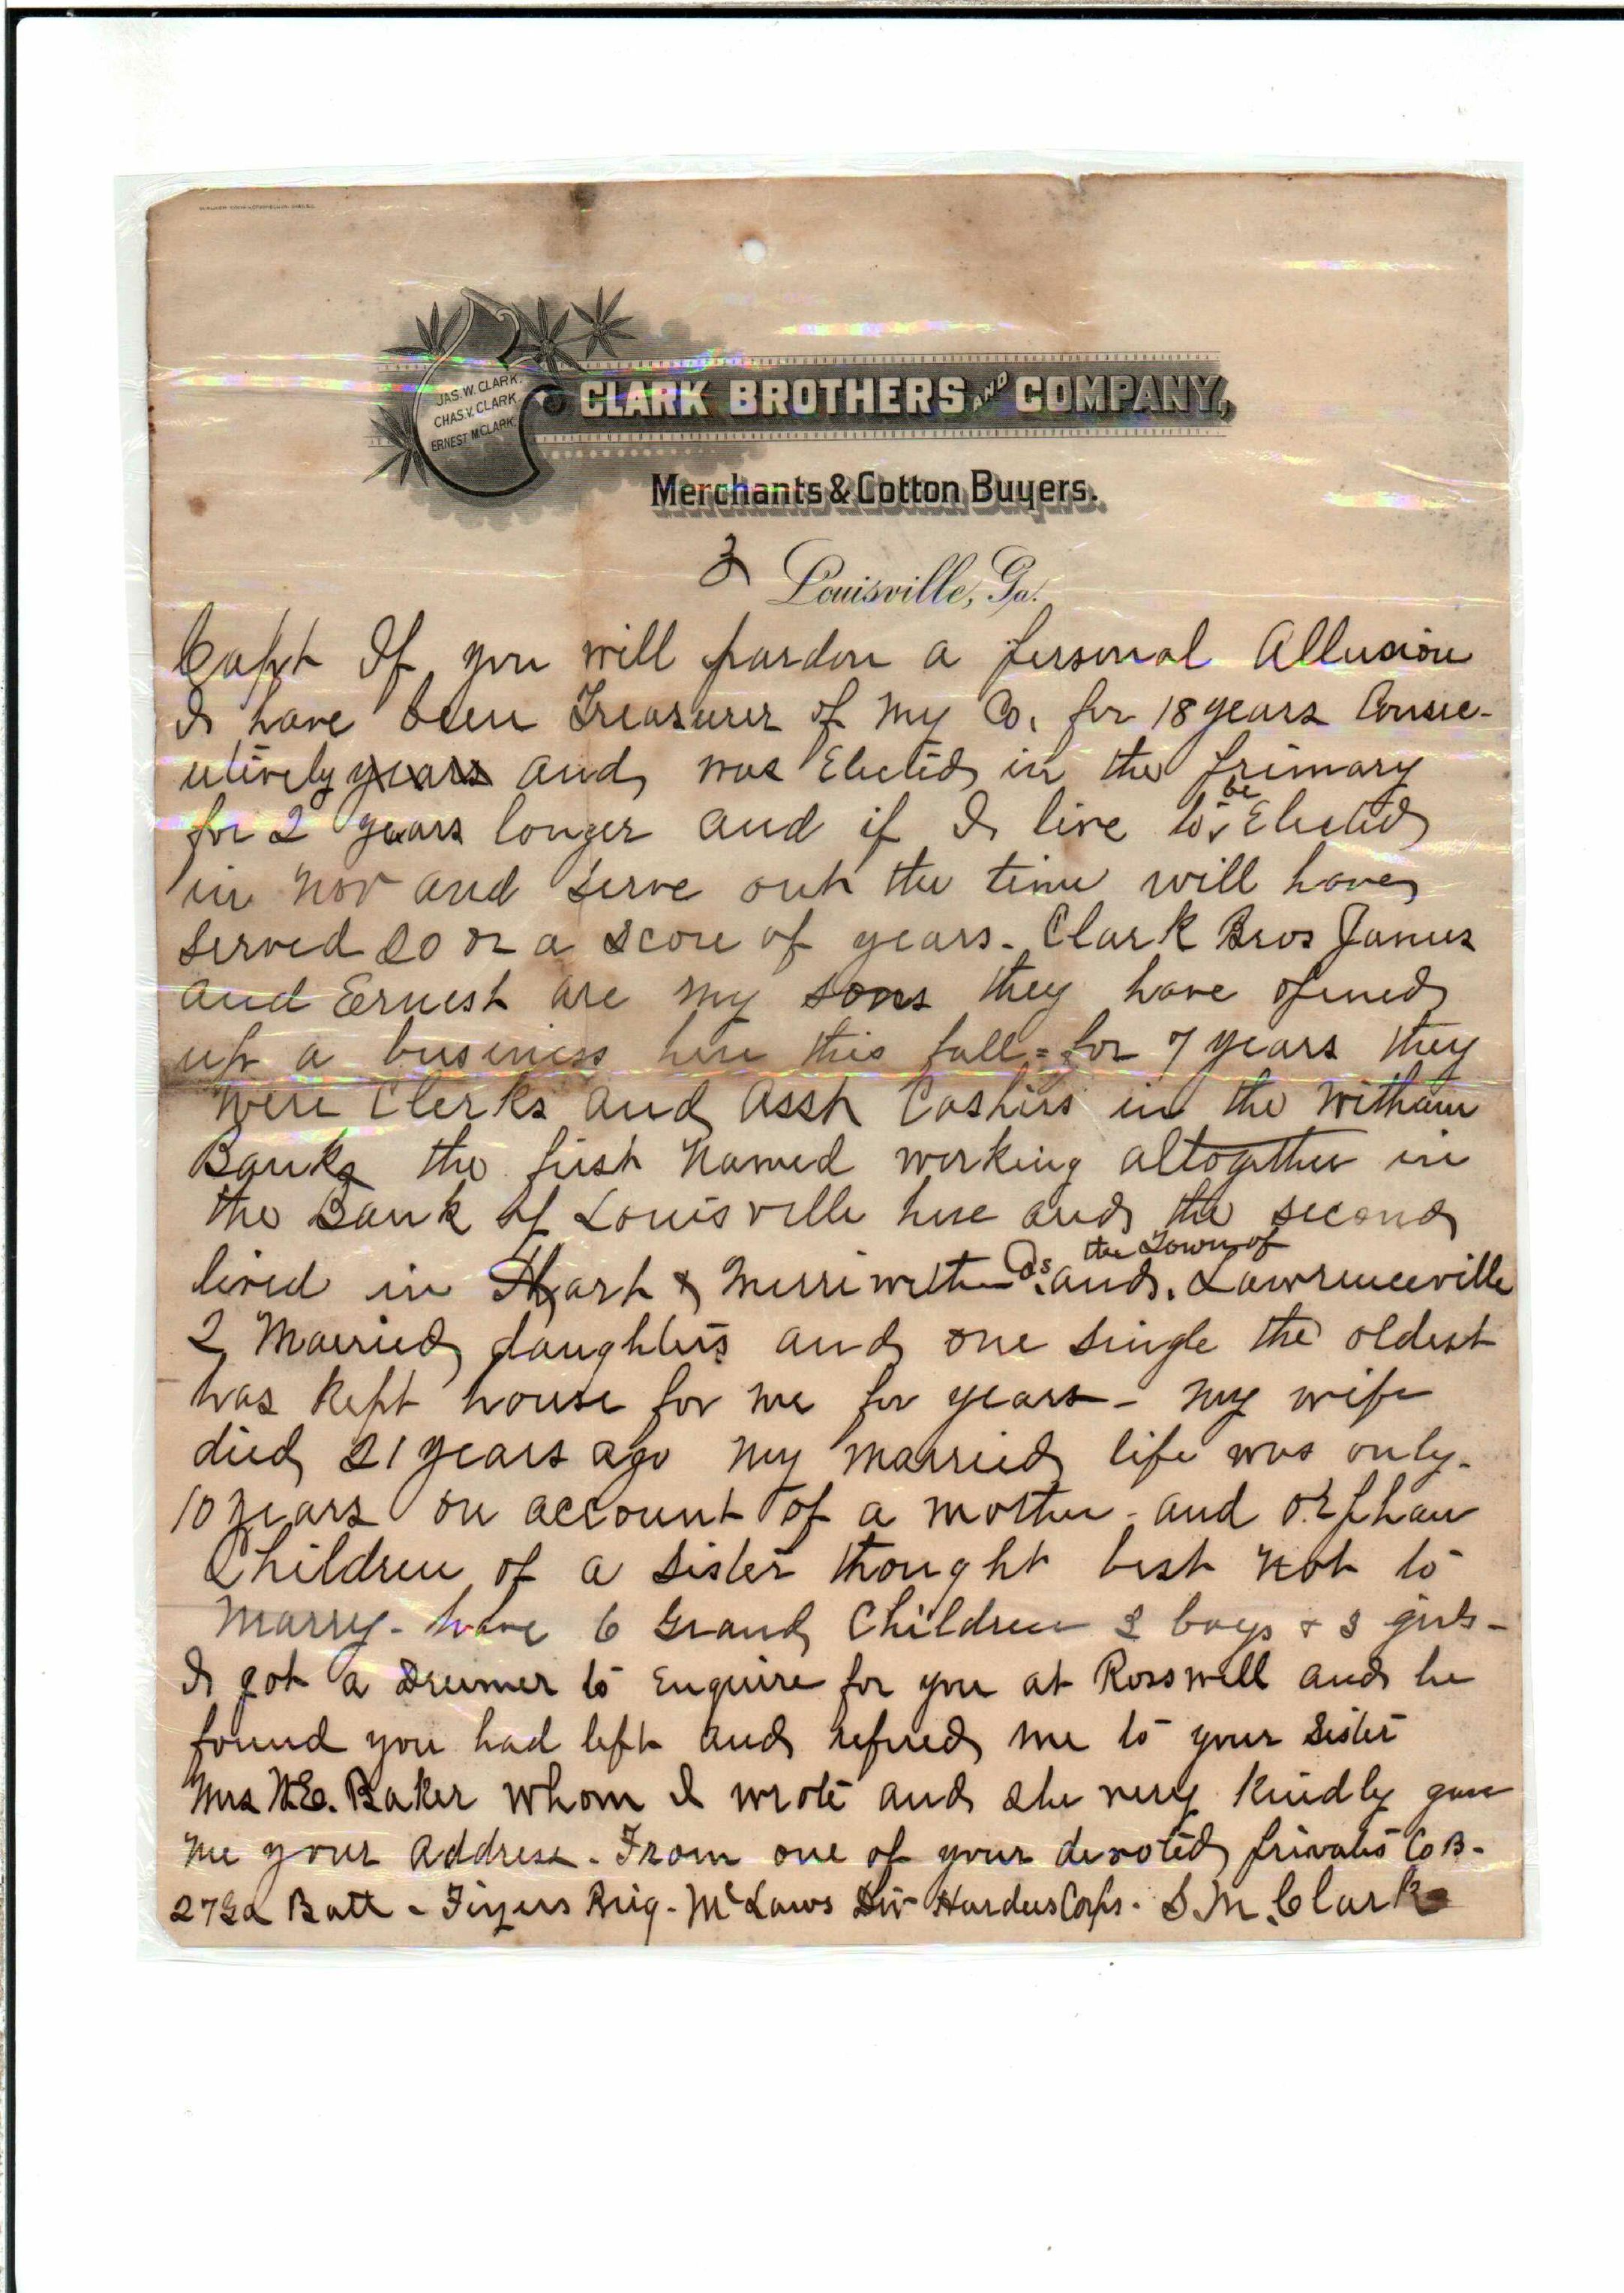 JAS. W. CLARK.
CHAS. V. CLARK.
ERNEST M. CLARK.
CLARK BROTHERS AND COMPANY,
Merchants & Cotton Buyers.
3
Louisville, Ga.
Capt If you will pardon a personal Allusion
I have been Treasurer of my Co. for 18 years Consec-
utively years and was Elected in the primary
for 2 years longer and if I live to be Elected
in Nov and serve out the time will have
served 20 or a score of years - Clark Bros James
and Ernest are my sons they have opened
up a business here this fall = for 7 years they
were Clerks and Asst Cashiers in the Witham
Banks the first Named working altogether in
the Bank of Louisville here and the second
lived in Hart & Merriwether Cos. and the Town of Lawrenceville
2 Married daughters and one single the oldest
has Kept house for me for years - my wife
died 21 years ago my married life was only
10 years on account of a mother - and orphan
Children of a sister thought best not to
marry - have 6 Grand Children 3 boys & 3 girls -
I got a Drumer to Enquire for you at Rosswell and he
found you had left and refered me to your sister
Mrs Baker whom I wrote and she very Kindly gave
me your address - From one of your devoted privates Co B -
27 Ga Batt - Fizers Brig - McLaws Div Hardees Corps - S. M. Clark